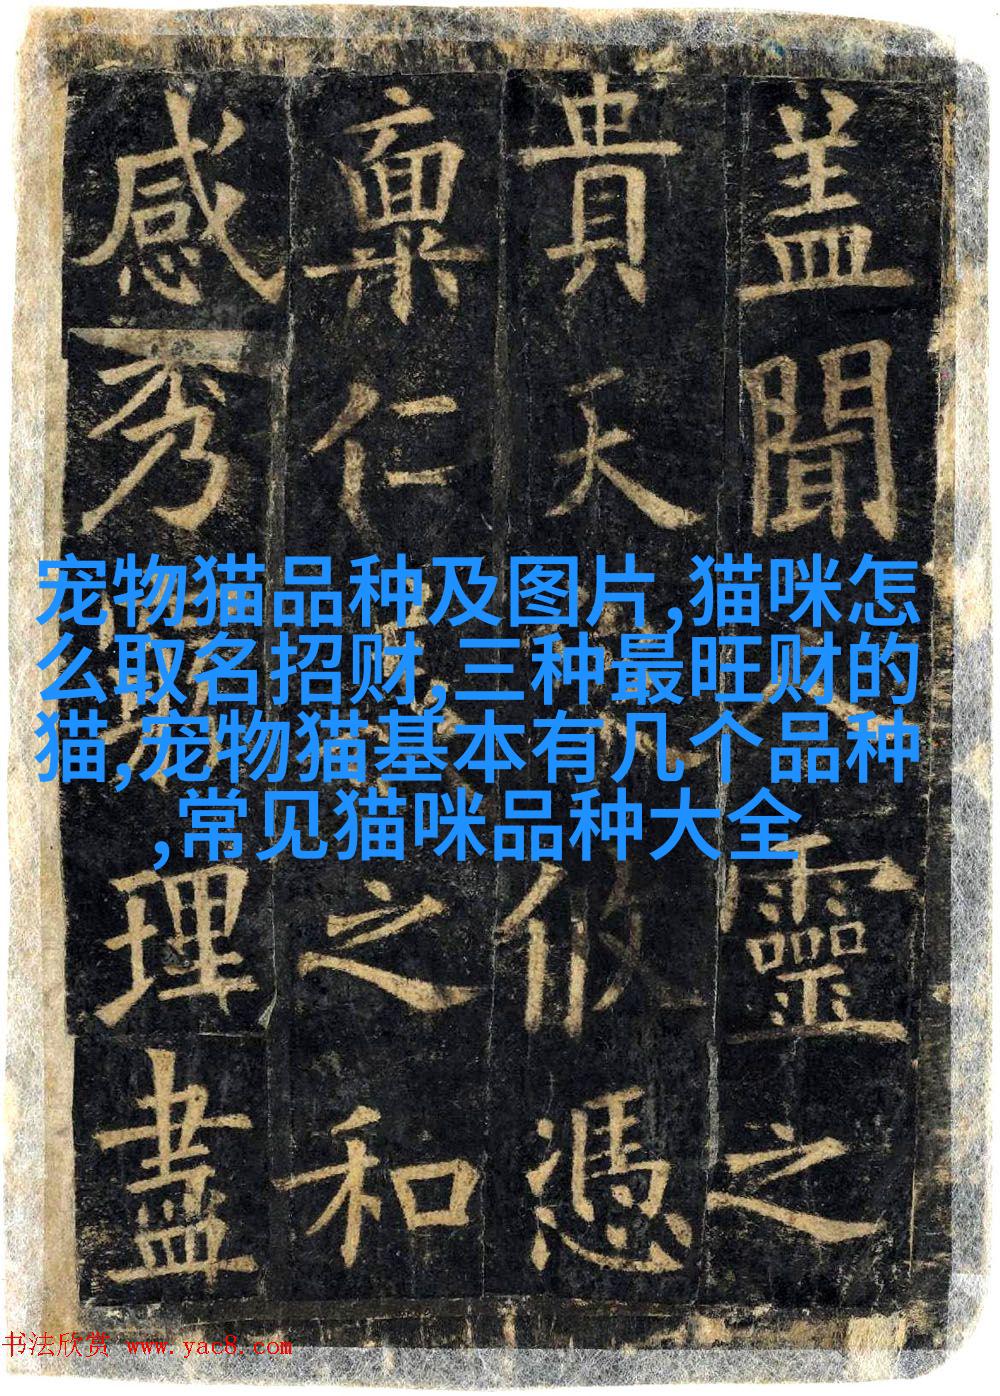 盖聞靈之
貴天攸憑
稟仁之和
感秀理盡
宠物猫品种及图片,猫咪怎
么取名招财,三种最旺财的
猫,宠物猫基本有几个品种
,常见猫咪品种大全
书法欣赏 www.yac8.com